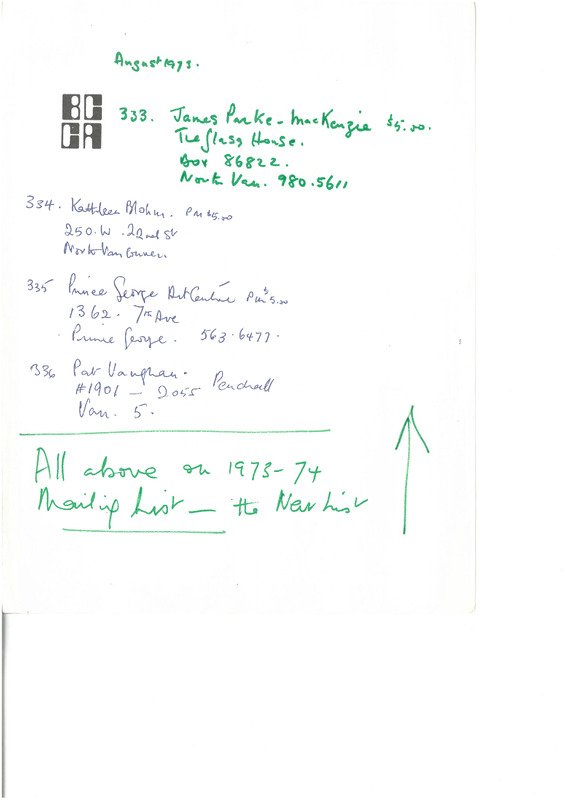 August 1973.
BC
CA
333. James Parke-MacKenzie $5.00.
The Glass House.
Box 86822.
North Van. 980.5611
334. Kathleen Blohm. Pd $5.00
250. W. 22nd St
North Vancouver.
335 Prince George Art Centre Pd $5.00
1362. 7th Ave
Prince George. 563.6477.
336 Pat Vaughan.
#1901 - 2055 Pendrell
Van. 5.
All above on 1973-74
Mailing List - the New List